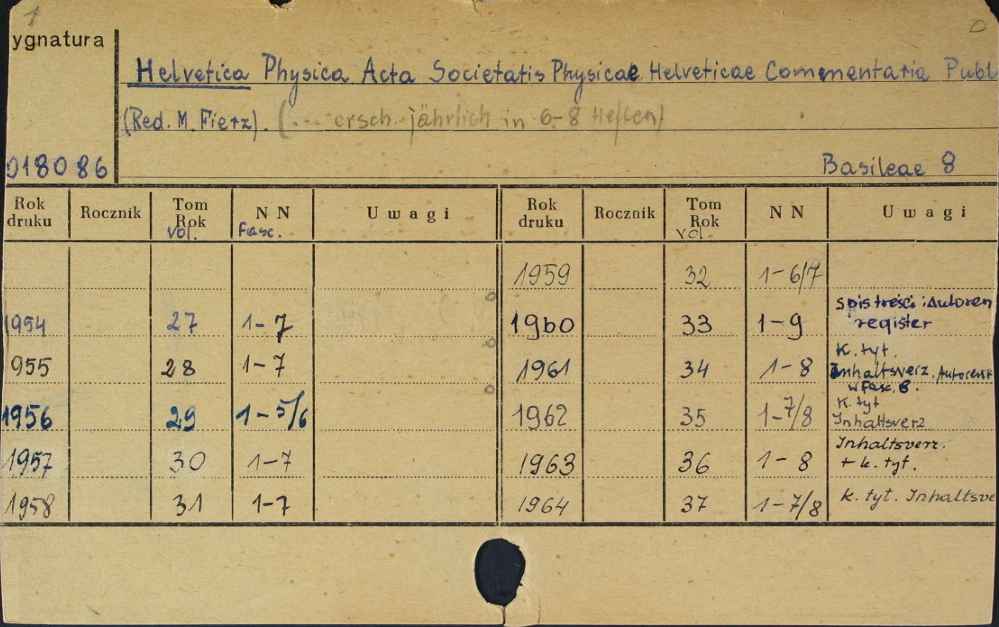 1
ygnatura
Helvetica Physica Acta Societatis Physicae Helveticae Commentaria Publ
(Red. M. Fierz). (... ersch. jährlich in 6-8 Heften)
018086
Basileae 8
Rok druku Rocznik Tom Rok Vol. NN Fasc. Uwagi Rok druku Rocznik Tom Rok Vol. NN Uwagi
1959 32 1-6/7
1954 27 1-7 1960 33 1-9 spis treści i Autoren register
955 28 1-7 1961 34 1-8 K. tyt. Inhaltsverz. w Fasc. 8.
1956 29 1-5/6 1962 35 1-7/8 K. tyt Inhaltsverz
1957 30 1-7 1963 36 1-8 Inhaltsverz. + k. tyt.
1958 31 1-7 1964 37 1-7/8 K. tyt. Inhaltsve